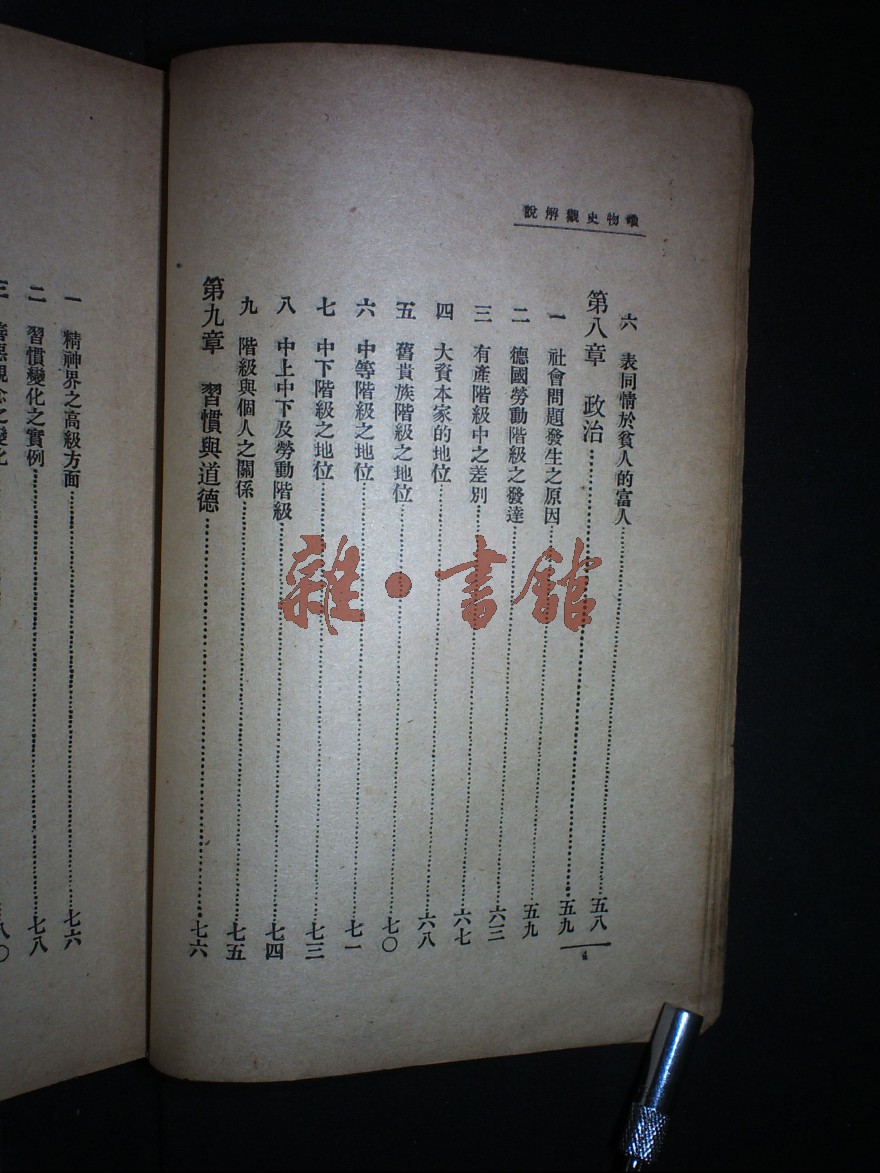 唯物史觀解說
六 表同情於貧人的富人……五八
第八章 政治……五九
一 社會問題發生之原因……五九
二 德國勞動階級之發達……六三
三 有產階級中之差別……六七
四 大資本家的地位……六八
五 舊貴族階級之地位……七〇
六 中等階級之地位……七一
七 中下階級之地位……七三
八 中上中下及勞動階級……七四
九 階級與個人之關係……七五
第九章 習慣與道德……七六
4
一 精神界之高級方面……七六
二 習慣變化之實例……七八
三 善惡觀念之變化……八〇
雜·書館